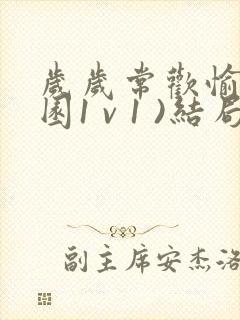 歲歲常歡愉
園1v1)結局
副主席安杰洛